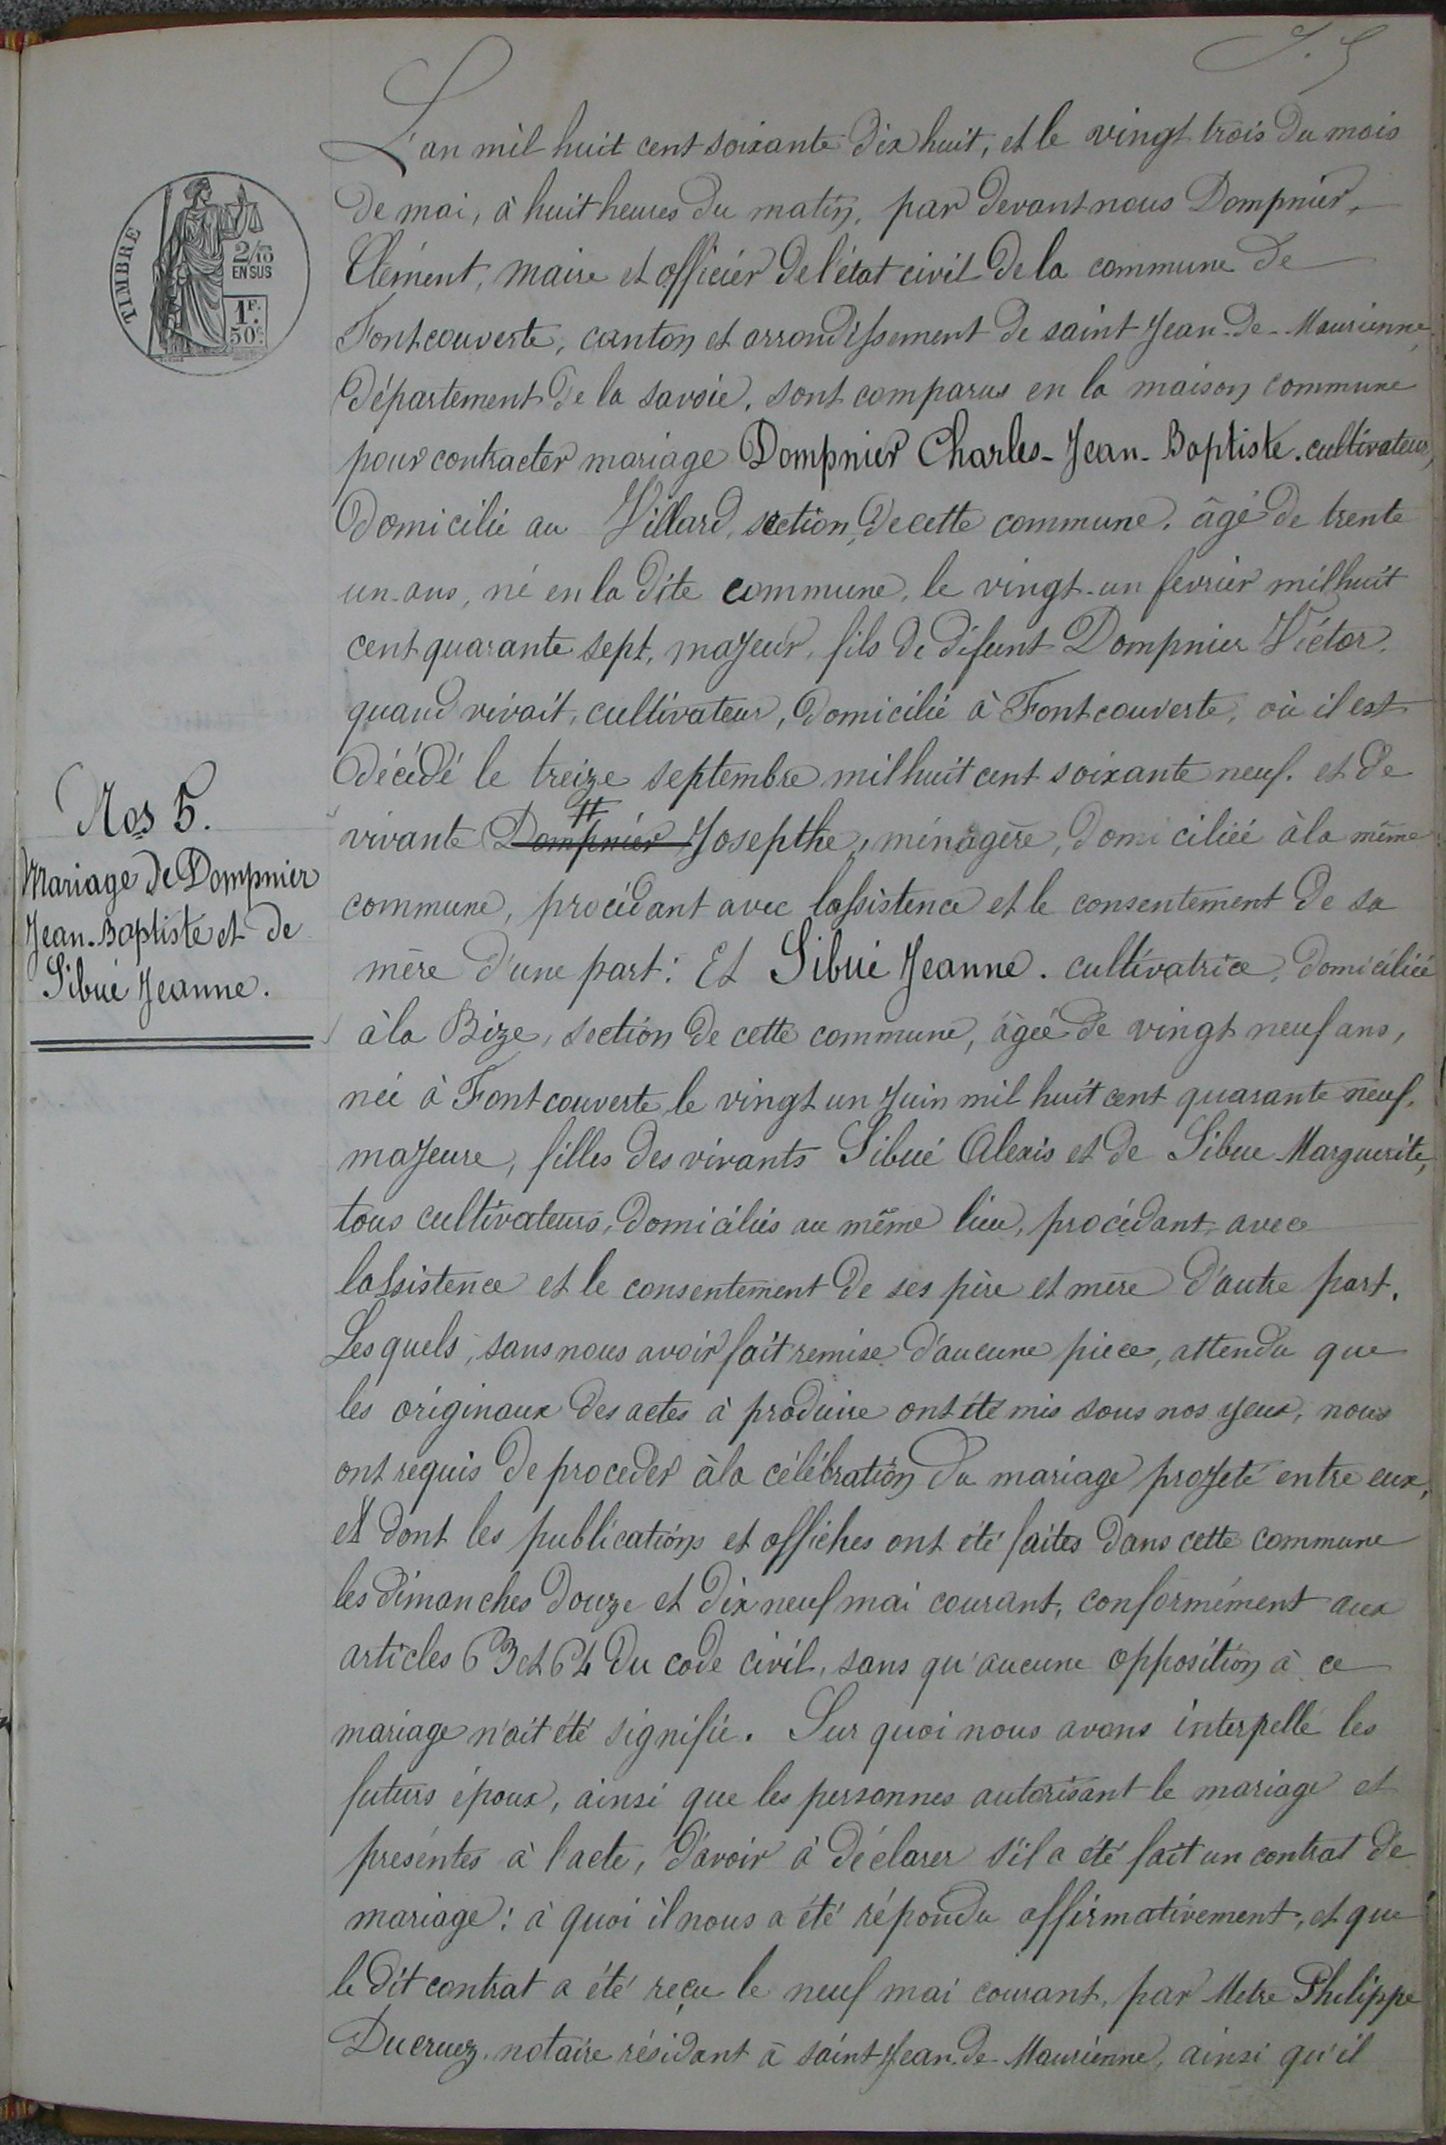 L'an mil huit cent soixante dix huit, et le vingt trois du mois
de mai, à huit heures du matin, par devant nous Dompnier
Clément, maire et officier de l'état civil de la commune de
Fontcouverte, canton et arrondissement de saint Jean-de-Maurienne,
département de la savoie, sont comparus en la maison commune
pour contracter mariage Dompnier Charles-Jean-Baptiste. cultivateur,
domicilié au Villard, section de cette commune, âgé de trente
un-ans, né en la dite commune, le vingt-un fevrier mil huit
cent quarante sept, majeur, fils de défunt Dompnier Victor,
quand vivait, cultivateur, domicilié à Fontcouverte, où il est
décédé le treize septembre mil huit cent soixante neuf. et de
vivante Dompnier Josepthe, ménagère, domiciliéé à la même
commune, procédant avec lassistence et le consentement de sa
mère d'une part: Et Sibué Jeanne. cultivatrice, domiciliéé
à la Bize, section de cette commune, âgéé de vingt neuf ans,
néé à Fontcouverte, le vingt un Juin mil huit cent quarante neuf,
majeure, filles des vivants Sibué Alexis et de Sibue Marguerite,
tous cultivateurs, domiciliés au même lieu, procédant avec
lassistence et le consentement de ses père et mère d'autre part.
Lesquels, sans nous avoir fait remise d'aucune piece, attendu que
les originaux des actes à produire ont été mis sous nos yeux, nous
ont requis de proceder à la célébration du mariage projeté entre eux,
et dont les publications et affiches ont été faites dans cette commune
les dimanches douze et dix neuf mai courant, conformément aux
articles 63 et 64 du code civil, sans qu'aucune opposition à ce
mariage n'ait été signifié. Sur quoi nous avons interpellé les
futurs époux, ainsi que les personnes autorisant le mariage et
présentes à l'acte, d'avoir à déclarer s'il a été fait un contrat de
mariage: à quoi il nous a été répondu affirmativement, et que
le dit contrat a été reçu le neuf mai courant, par Metre Philippe
Ducruez, notaire résidant à saint Jean-de-Maurienne, ainsi qu'il
Nos 5.
Mariage de Dompnier
Jean-Baptiste et de
Sibué Jeanne.
TIMBRE
2/10
EN SUS
1F.
50c.